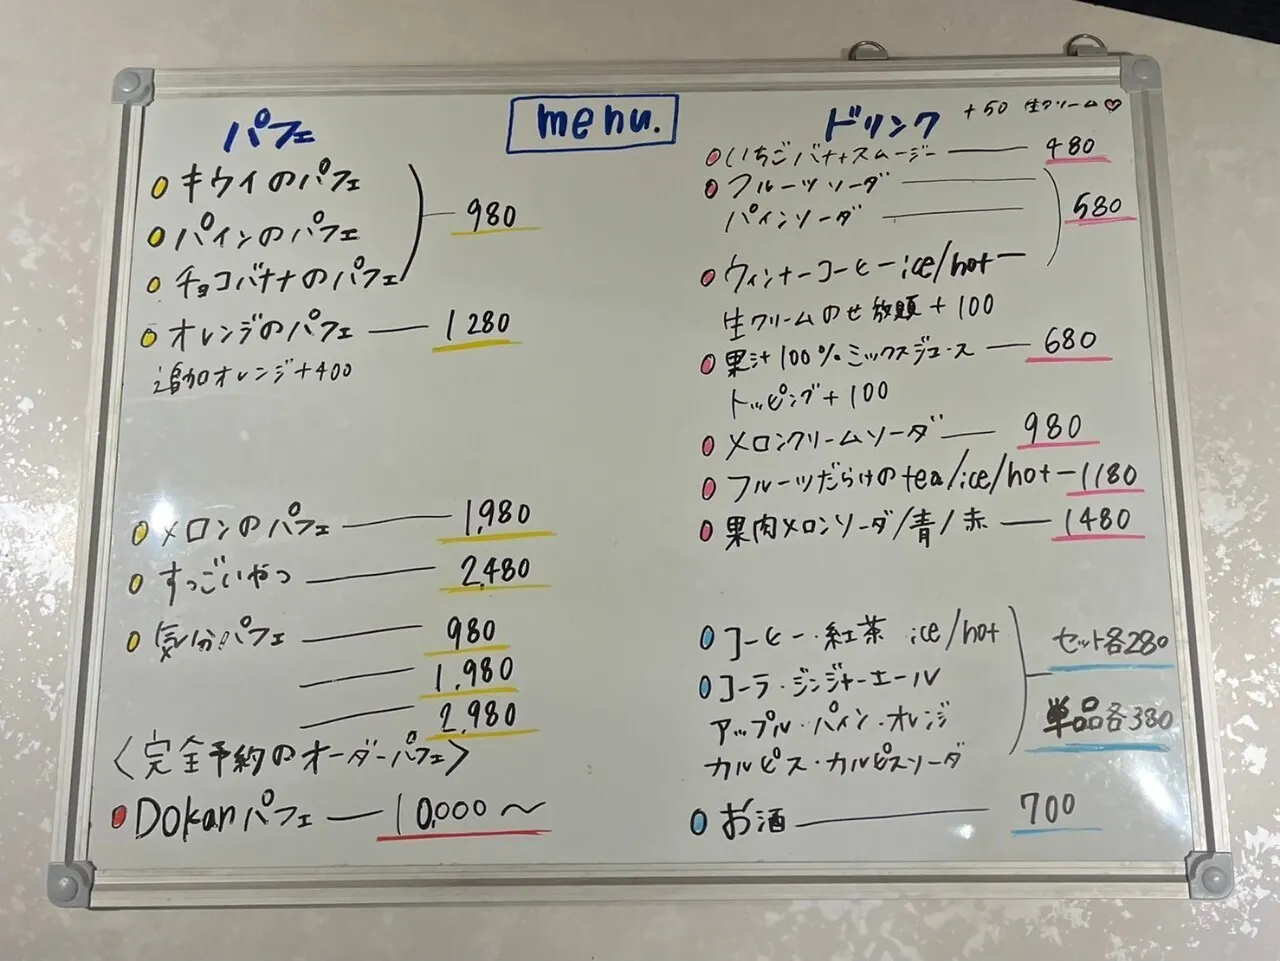 menu.
パフェ
キウイのパフェ
パインのパフェ
チョコバナナのパフェ
980
オレンジのパフェ 1280
追加オレンジ+400
メロンのパフェ 1,980
すっごいやつ 2,480
気分!パフェ 980
1,980
2,980
〈完全予約のオーダーパフェ〉
Dokanパフェ 10,000〜
ドリンク +50 生クリーム♡
いちごバナナスムージー 480
フルーツソーダ
パインソーダ
580
ウィンナーコーヒーice/hot
生クリームのせ放題+100
果汁100%ミックスジュース 680
トッピング+100
メロンクリームソーダ 980
フルーツだらけのtea/ice/hot 1180
果肉メロンソーダ/青/赤 1480
コーヒー・紅茶 ice/hot
コーラ・ジンジャーエール
アップル・パイン・オレンジ
カルピス・カルピスソーダ
セット各280
単品各380
お酒 700